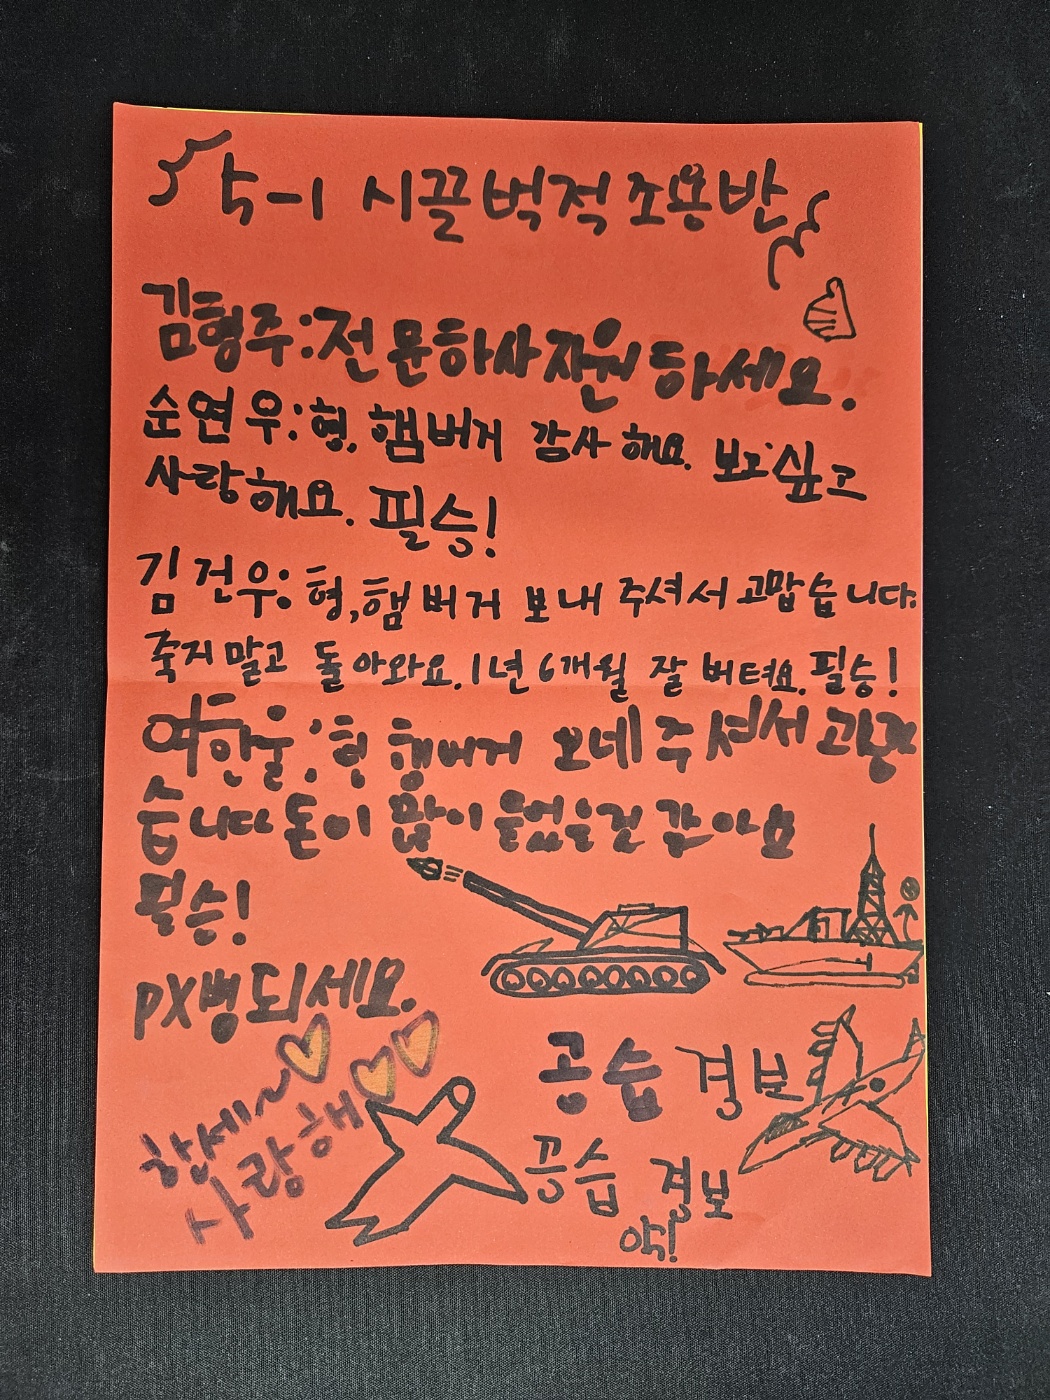 5-1 시끌벅적 조용반
김형주:전문하사 지원하세요.
순연우:형, 햄버거 감사해요. 보고싶고
사랑해요. 필승!
김건우: 형,햄버거 보내 주셔서 고맙습니다.
죽지말고 돌아와요. 1년 6개월 잘 버텨요. 필승!
여한울:형 햄버거 보네주셔서
습니다 돈이 많이 들었을건 같아요
필승!
PX병되세요.
한세~
사랑해
공습 경보
공습 경보
악!